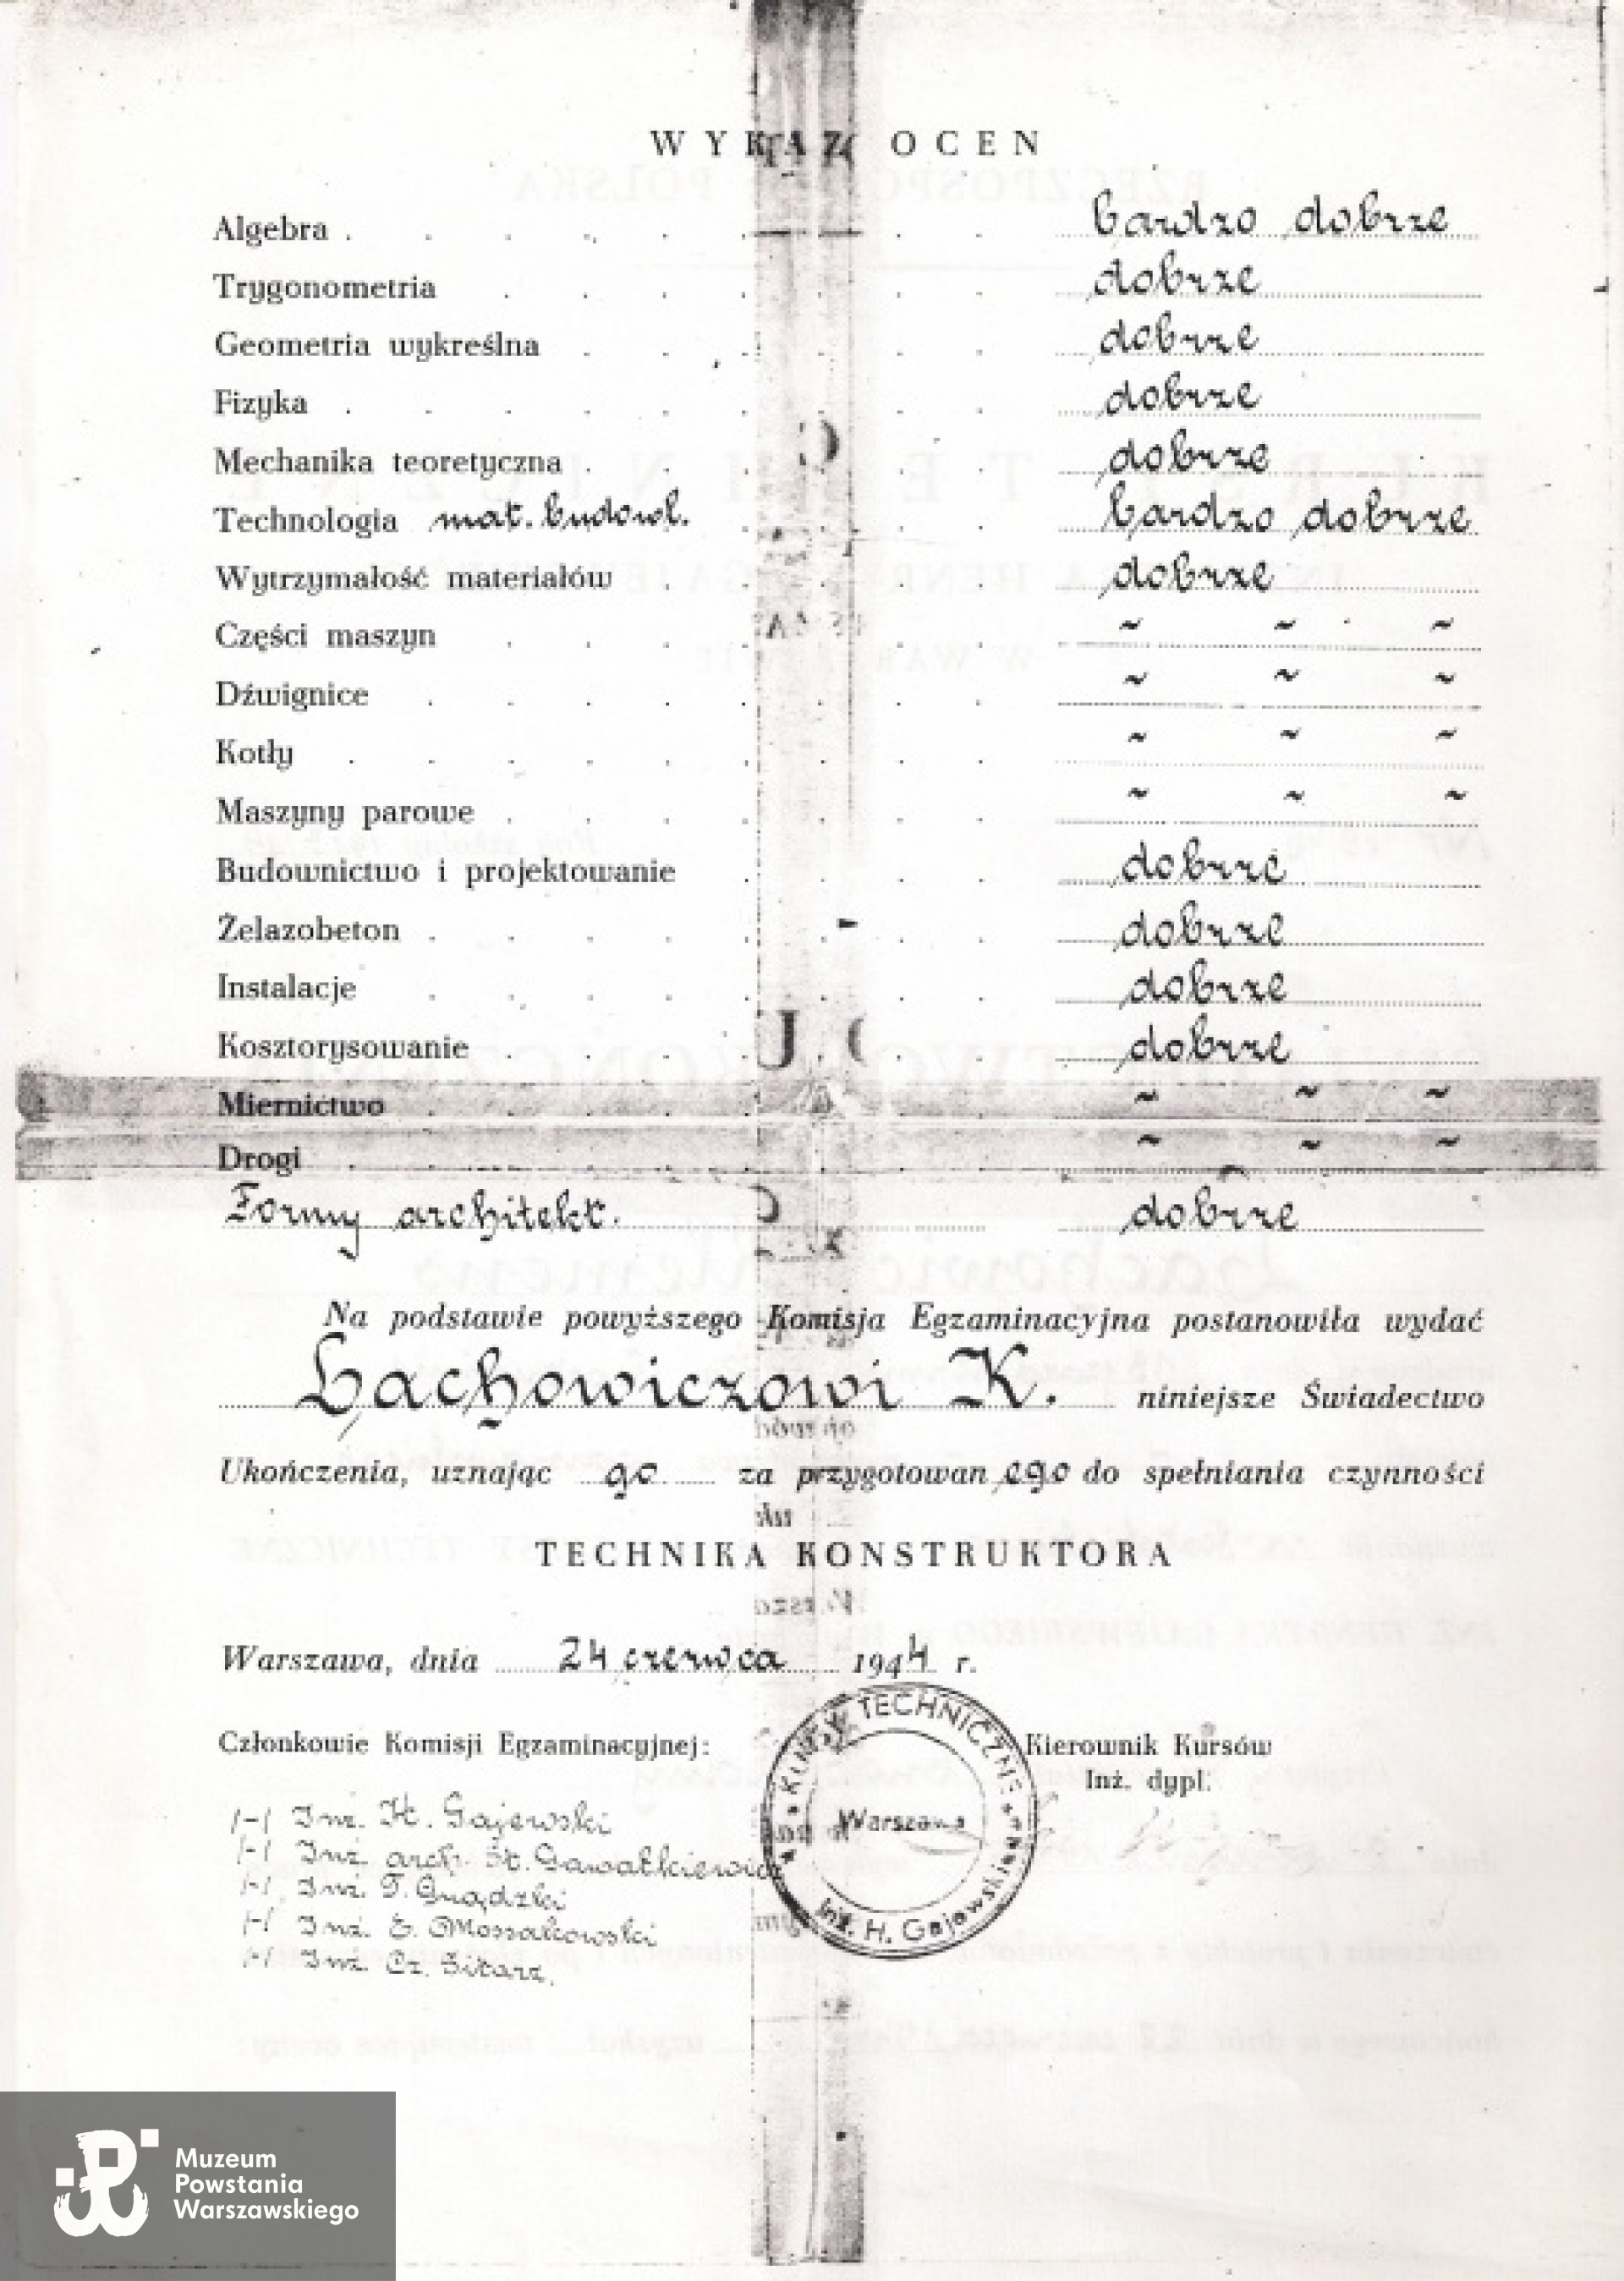 WYKAZ OCEN
Algebra . . . . . . . . bardzo dobrze
Trygonometria . . . . . . . dobrze
Geometria wykreślna . . . . . . dobrze
Fizyka . . . . . . . . . dobrze
Mechanika teoretyczna . . . . . . dobrze
Technologia mat. budowl. . . . . bardzo dobrze
Wytrzymałość materiałów . . . . . dobrze
Części maszyn . . . . . . . ~ ~ ~
Dźwignice . . . . . . . . ~ ~ ~
Kotły . . . . . . . . . ~ ~ ~
Maszyny parowe . . . . . . . ~ ~ ~
Budownictwo i projektowanie . . . . dobrze
Żelazobeton . . . . . . . . dobrze
Instalacje . . . . . . . . dobrze
Kosztorysowanie . . . . . . . dobrze
Miernictwo . . . . . . . . ~ ~ ~
Drogi . . . . . . . . . ~ ~ ~
Formy architekt. dobrze
Na podstawie powyższego Komisja Egzaminacyjna postanowiła wydać
Lachowiczowi K. niniejsze Świadectwo
Ukończenia, uznając go za przygotowanego do spełniania czynności
TECHNIKA KONSTRUKTORA
Warszawa, dnia 24 czerwca 1944 r.
Członkowie Komisji Egzaminacyjnej:
Kierownik Kursów
Inż. dypl.
/-/ Inż. H. Gajewski
/-/ Inż. arch. St. Gawałkiewicz
/-/ Inż. Gnądzki
/-/ Inż. E. Mossakowski
/-/ Inż. Cz. Sitarz.
KURSY TECHNICZNE
Warszawa
Inż. H. Gajewskiego
Muzeum
Powstania
Warszawskiego